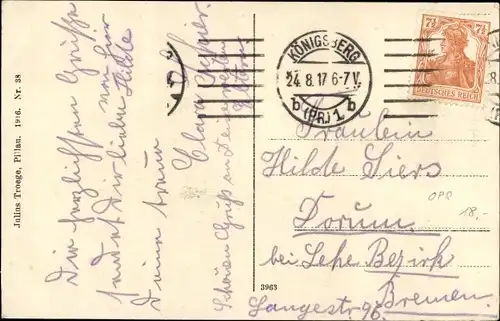 Die herzlichsten Grüsse
sendet Dir liebe Hilde
Deine treue
Clara
Schönen Gruss an Deine lieben Eltern.
Julius Troege, Pillau. 1916. Nr. 38
3963
KÖNIGSBERG
24.8.17 6-7V.
b (PR.) 1 b
7½ 7½
DEUTSCHES REICH
Fräulein
Hilde Siers
Dorum
bei Lehe Bezirk
Bremen
Langestr. 96.
OPR
18,-